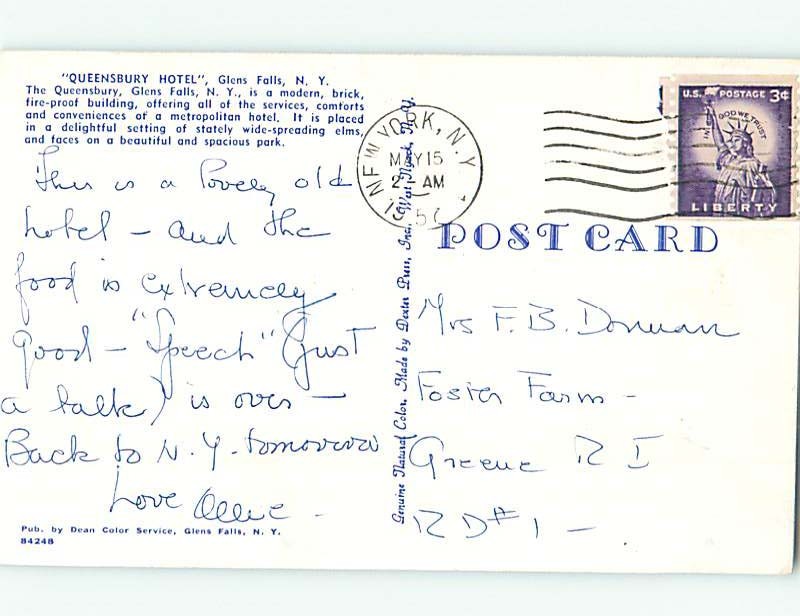 "QUEENSBURY HOTEL", Glens Falls, N. Y.
The Queensbury, Glens Falls, N. Y., is a modern, brick,
fire-proof building, offering all of the services, comforts
and conveniences of a metropolitan hotel. It is placed
in a delightful setting of stately wide-spreading elms,
and faces on a beautiful and spacious park.
This is a lovely old
hotel - and the
food is extremely
good - "Speech" (just
a talk) is over -
Back to N.Y. tomorrow
Love Ollie -
Pub. by Dean Color Service, Glens Falls, N. Y.
84248
Genuine Natural Color. Made by Dexter Press, Inc., West Nyack, N. Y.
NEW YORK, N.Y.
MAY 15
2 AM
57
U.S. POSTAGE 3¢
IN GOD WE TRUST
LIBERTY
POST CARD
Mrs F. B. Dorman
Foster Farm -
Greene R I
R D #1 -